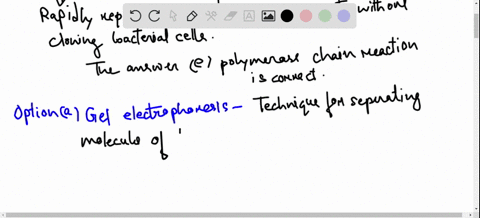 Rapidly rep without
cloning bacterial cells.
The answer (e) polymerase chain reaction
is correct.
Option(a) Gel electrophoresis – Technique for separating
molecule of